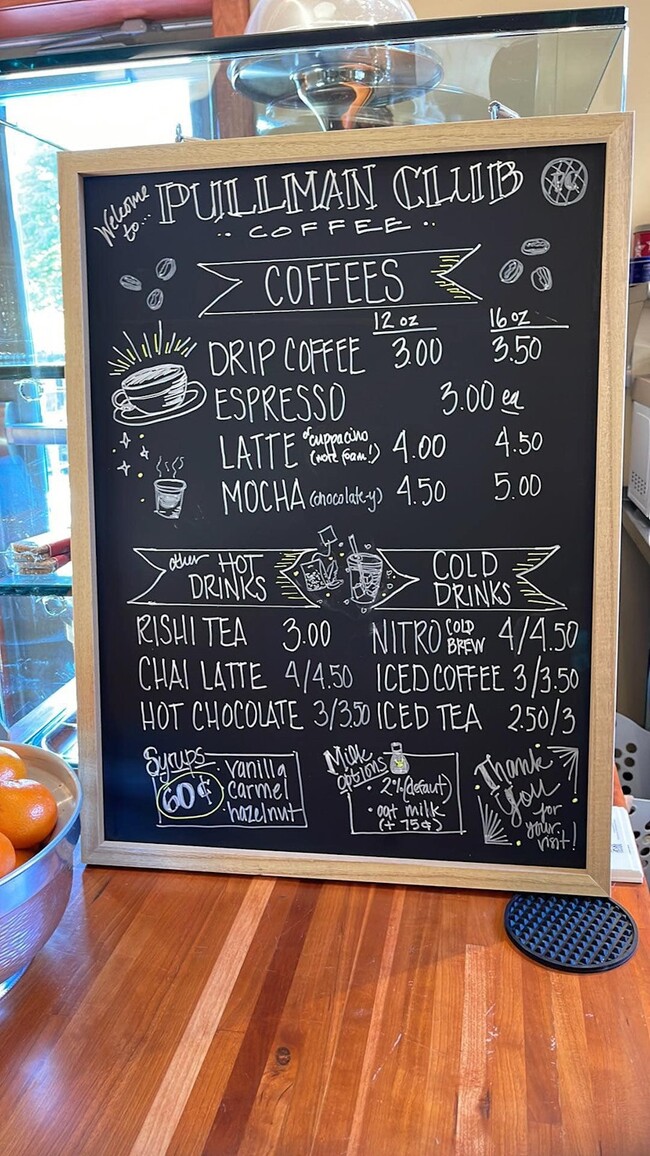 Welcome to... PULLMAN CLUB
PC
·· COFFEE ··
COFFEES
12 oz 16 oz
DRIP COFFEE 3.00 3.50
ESPRESSO 3.00 ea
LATTE or cuppacino (more foam!) 4.00 4.50
MOCHA (chocolate-y) 4.50 5.00
other HOT DRINKS
COLD DRINKS
RISHI TEA 3.00
CHAI LATTE 4/4.50
HOT CHOCOLATE 3/3.50
NITRO COLD BREW 4/4.50
ICED COFFEE 3/3.50
ICED TEA 2.50/3
Syrups
60¢
vanilla
carmel
hazelnut
Milk options
· 2% (defaut)
· oat milk
(+ 75¢)
Thank
you
for
your
visit!